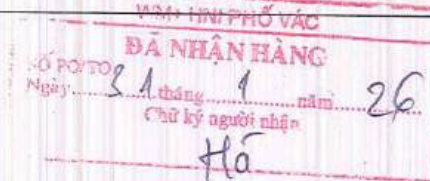 WM+ HNI PHỐ VÁC
ĐÃ NHẬN HÀNG
SỐ PO/TO
Ngày 31 tháng 1 năm 26
Chữ ký người nhận
Hà